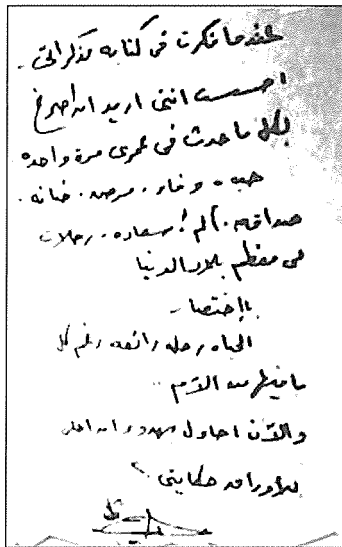 عندما فكرت فى كتابه مذكراتى.
احسست اننى اريد ان اصرخ
بكل ما حدث فى عمرى مرة واحده
حب. وفاء. مرض. خيانه.
صداقه. ألم! سعاده. رحلات
فى معظم بلاد الدنيا
بإختصار
الحياه رحله رائعه رغم كل
ما فيها من الآم..
والآن احاول بهدوء ان
لأوراقى حكايتى